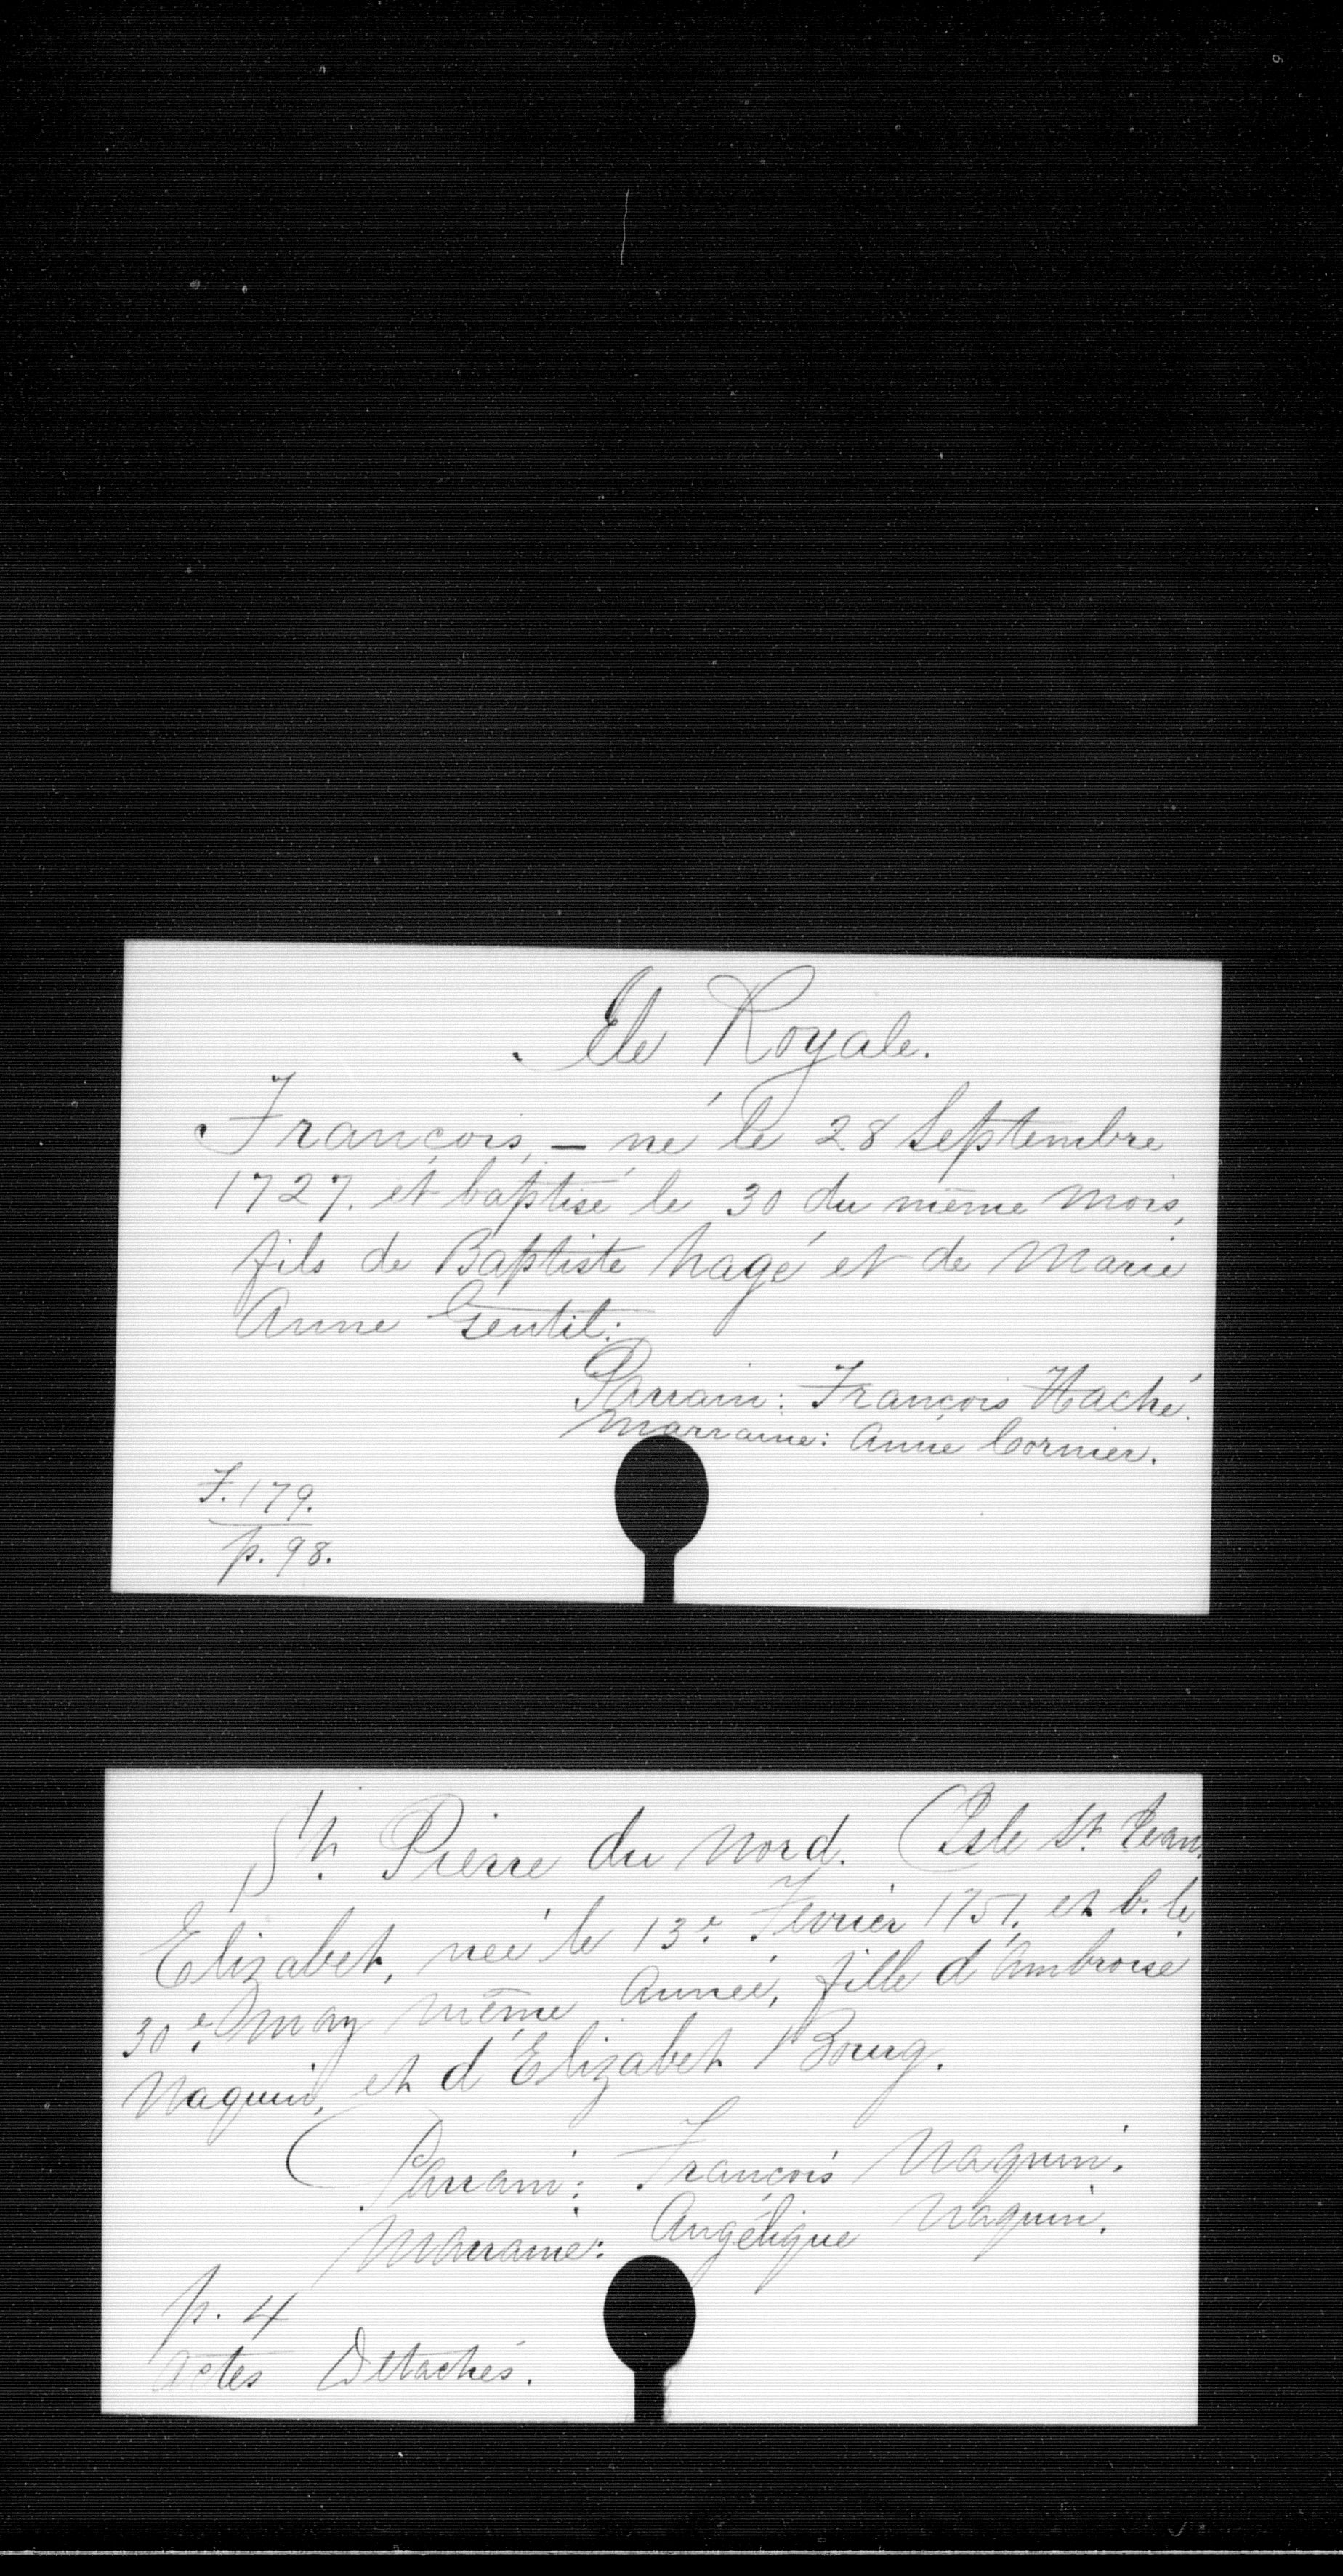 Ile Royale.
François, – né le 28 Septembre
1727. et baptisé le 30 du même mois,
fils de Baptiste hagé et de Marie
Anne Gentil.
Parrain: François Haché.
Marraine: Anne Cormier.
F. 179.
p. 98.
St. Pierre du Nord. (Isle St. Jean.
Elizabet, née le 13e. Février 1751. et b. le
30e. May même Année, fille d'Ambroise
Naquin, et d'Elizabet Bourg.
Parrain: François Naquin.
Marraine: Angélique Naquin.
p. 4
Actes Détachés.